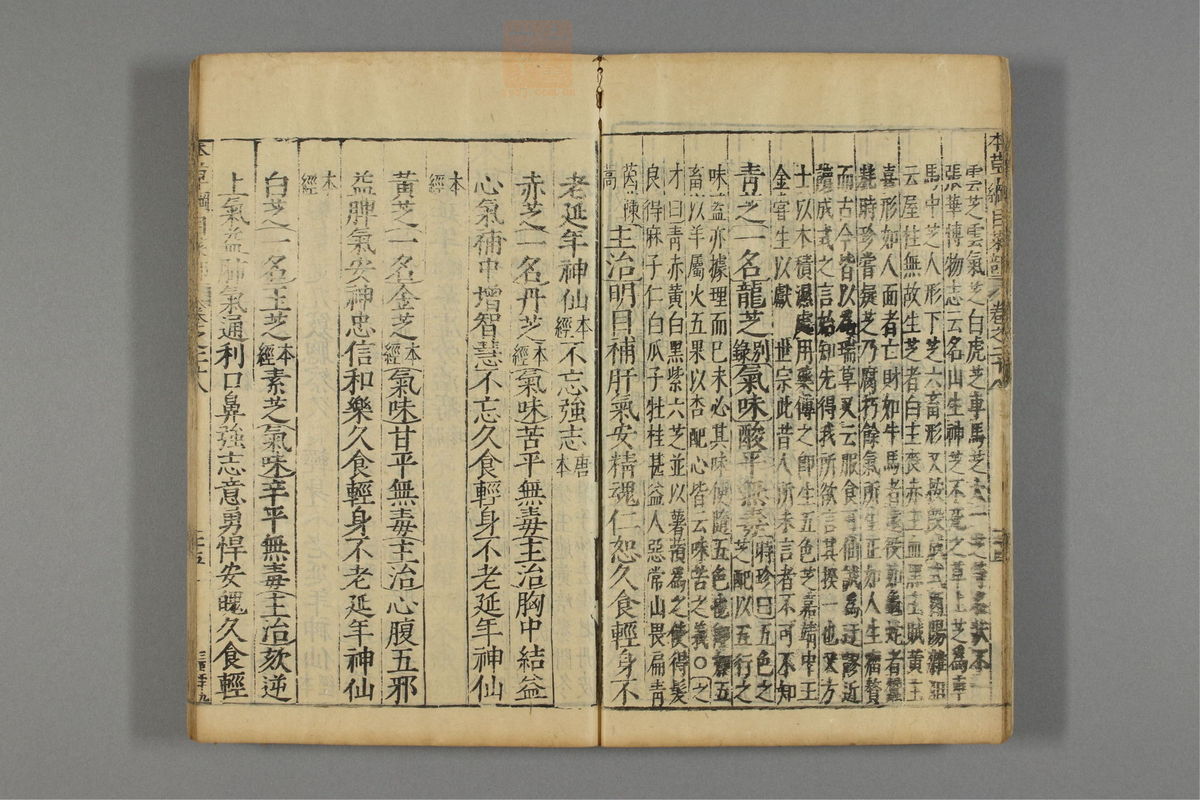 本草綱目菜部 卷之二十八
雲芝雲氣芝白虎芝車馬芝太一芝等名狀不
張華博物志云名山生神芝不死之草上芝為車
馬中芝人形下芝六畜形又按段成式酉陽雜俎
云屋柱無故生芝者白主喪赤主血黑主賊黃主
喜形如人面者亡財如牛馬者遠役如龜蛇者蠶
耗時珍嘗疑芝乃腐朽餘氣所生正如人生瘤贅
而古今皆以為瑞草又云服食可仙誠為迂謬近
讀成式之言始知先得我所欲言其揆一也又方
士以木積濕處用藥傅之即生五色芝嘉靖中王
金嘗生以獻 世宗此昔人所未言者不可不知
青芝一名龍芝別錄氣味酸平無毒時珍曰五色之芝配以五行之
味蓋亦據理而已未必其味便隨五色也即五
畜以羊屬火五果以杏配心皆云味苦之義○之
才曰青赤黃白黑紫六芝並以薯蕷為之使得髮
良得麻子仁白瓜子牡桂甚益人惡常山畏扁青
茵蔯蒿主治明目補肝氣安精魂仁恕久食輕身不
老延年神仙本經不忘強志唐本
赤芝一名丹芝本經氣味苦平無毒主治胸中結益
心氣補中增智慧不忘久食輕身不老延年神仙
本經
黃芝一名金芝本經氣味甘平無毒主治心腹五邪
益脾氣安神忠信和樂久食輕身不老延年神仙
本經
白芝一名玉芝本經素芝氣味辛平無毒主治欬逆
上氣益肺氣通利口鼻強志意勇悍安魄久食輕
本草綱目菜部 卷之二十八